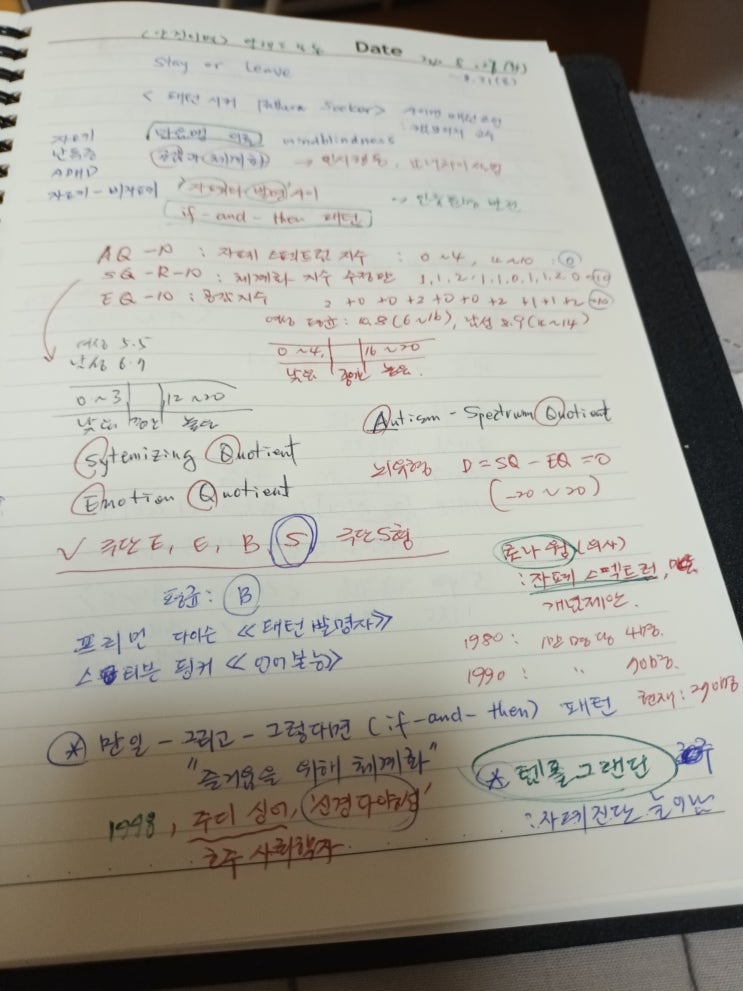 Date
Stay or Leave
< 패턴 시커 (Pattern Seeker)
자폐 마음맹 mindblindness
난독증 공감과 체계화 →
ADHD
자폐인-비자폐인
if-and-then 패턴
AQ-10 : 자폐 스펙트럼 지수 : 0~4, 4~10 : 0
SQ-R-10 : 체계화 지수 수정판 1,1,2,1,1,0,1,1,2,0 →10
EQ-10 : 공감지수 2+0+0+2+0+0+2+1+1+2 →10
여성 평균 : 10.8 (6~16), 남성 8.9 (4~14)
여성 5.5
남성 6.7
0~4, 16~20
낮음 중간 높음.
0~3 12~20
낮음 중간 높다
Autism-Spectrum Quotient
Sytemizing Quotient
뇌유형 D=SQ-EQ=0
Emotion Quotient
(-20~20)
✓ 극단E, E, B, S 극단S형
로나 윙 (의사)
: 자폐 스펙트럼,
개념제안.
평균: B
프리먼 다이슨 《패턴 발명자》
1980 : 1만 명당 4명.
스티븐 핑커 《언어본능》
1990 : 〃
현재 :
* 만일-그리고-그렇다면 (if-and-then) 패턴
"즐거움을 위해 체계화"
* 템플 그랜딘
: 자폐진단 높아짐
1998, 주디 싱어, '신경다양성'
호주 사회학자